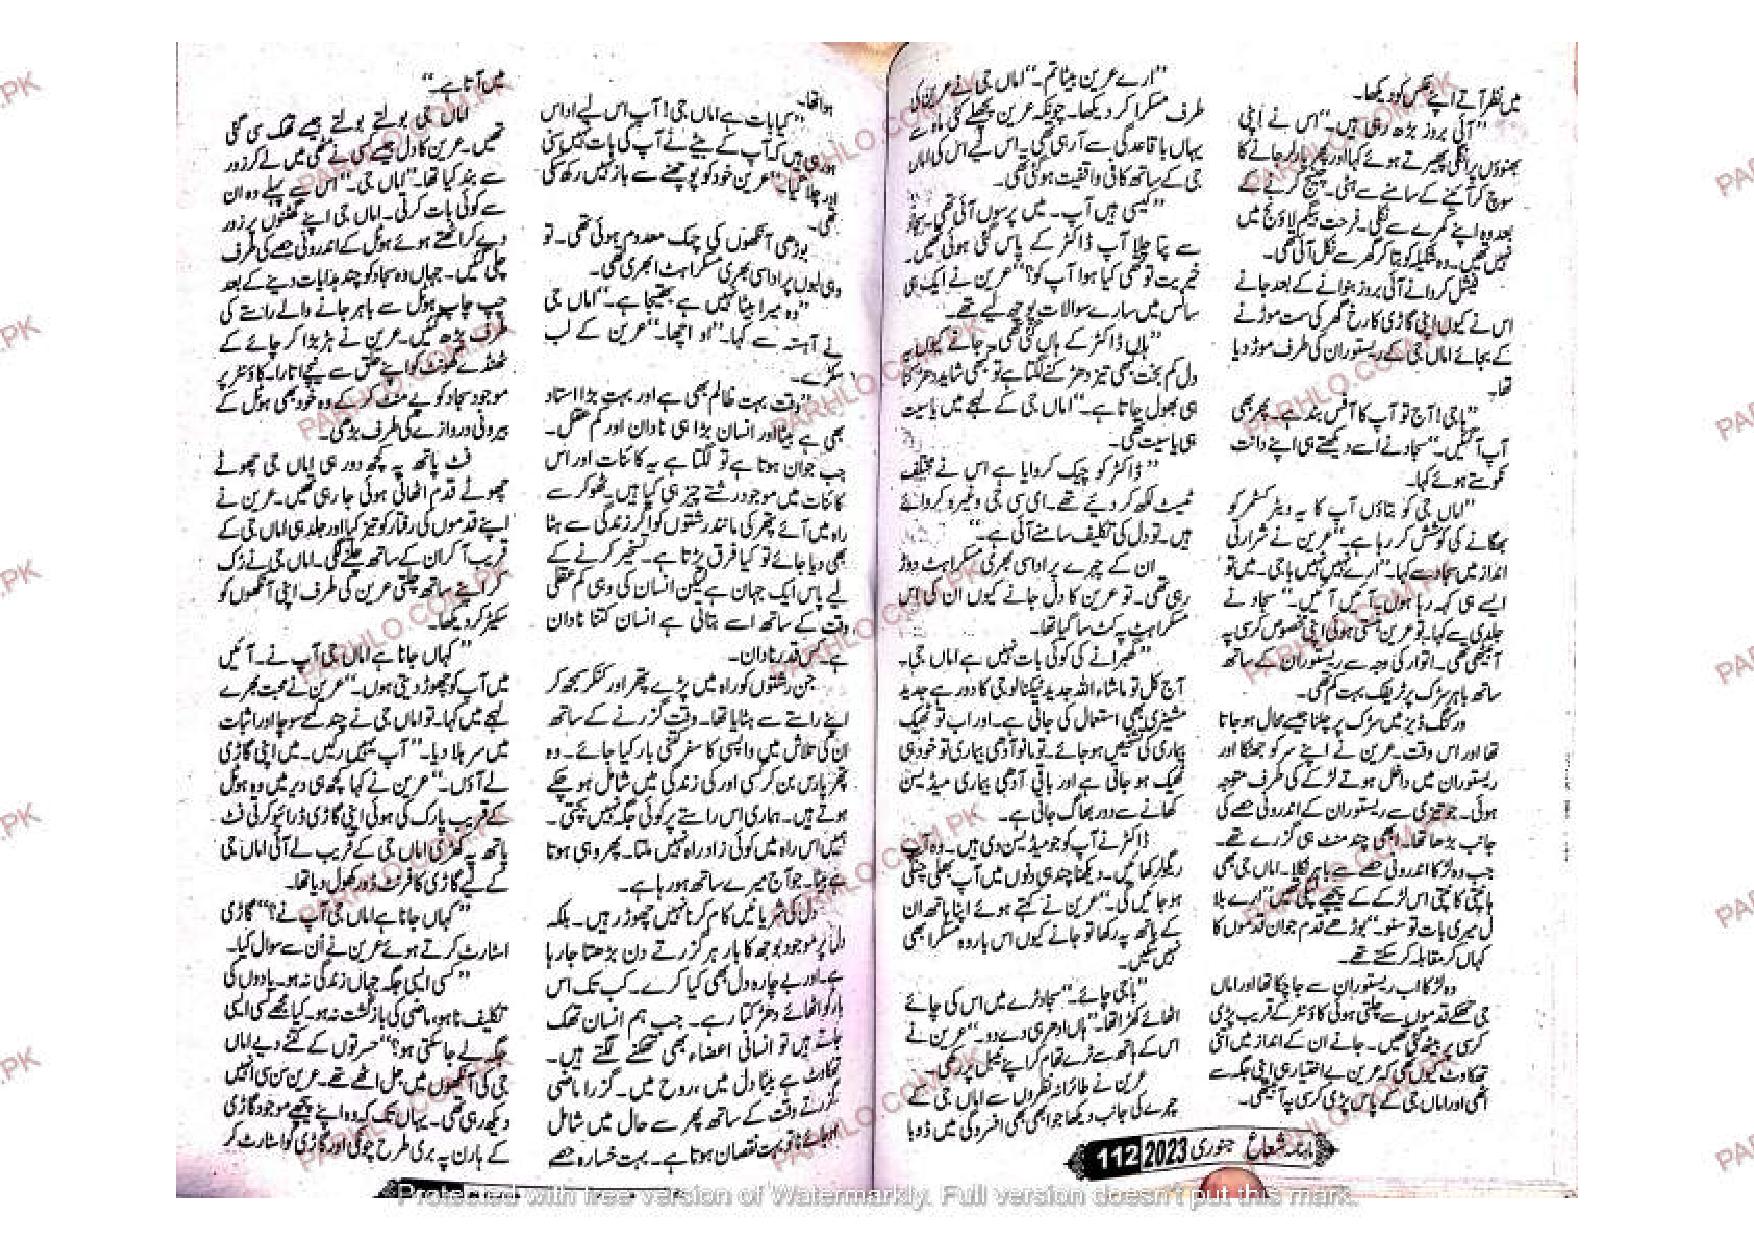 میں نظر آتے اپنے عکس کو دیکھا۔
"آئی بروز بڑھ رہی ہیں۔" اس نے اپنی
بھنوؤں پر انگلی پھیرتے ہوئے کہا اور پھر پارلر جانے کا
سوچ کر آئینے کے سامنے سے ہٹی۔ چینج کرنے کے
بعد وہ اپنے کمرے سے نکلی۔ فرحت بیگم لاؤنج میں
نہیں تھیں۔ وہ شکیلہ کو بتا کر گھر سے نکل آئی تھی۔
فیشل کروانے آئی بروز بنوانے کے بعد جانے
اس نے کیوں اپنی گاڑی کا رخ گھر کی سمت موڑنے
کے بجائے اماں جی کے ریستوران کی طرف موڑ دیا
تھا۔
"باجی! آج تو آپ کا آفس بند ہے۔ پھر بھی
آپ آگئیں۔" سجاد نے اسے دیکھتے ہی اپنے دانت
نکوستے ہوئے کہا۔
"اماں جی کو بتاؤں آپ کا یہ ویٹر کسٹمر کو
بھگانے کی کوشش کر رہا ہے۔" عرین نے شرارتی
انداز میں سجاد سے کہا۔ "ارے نہیں نہیں باجی۔ میں تو
ایسے ہی کہہ رہا ہوں۔ آئیں آئیں۔" سجاد نے
جلدی سے کہا۔ تو عرین ہنستی ہوئی اپنی مخصوص کرسی پہ
آبیٹھی تھی۔ اتوار کی وجہ سے ریستوران کے ساتھ
ساتھ باہر سڑک پر ٹریفک بہت کم تھی۔
ورکنگ ڈیز میں سڑک پر چلنا جیسے محال ہو جاتا
تھا اور اس وقت۔ عرین نے اپنے سر کو جھٹکا اور
ریستوران میں داخل ہوتے لڑکے کی طرف متوجہ
ہوئی۔ جو تیزی سے ریستوران کے اندرونی حصے کی
جانب بڑھا تھا۔ ابھی چند منٹ ہی گزرے تھے۔
جب وہ لڑکا اندرونی حصے سے باہر نکلا۔ اماں جی بھی
ہانپتی کانپتی اس لڑکے کے پیچھے لپکی تھیں "ارے بلا
ل میری بات تو سنو۔" بوڑھے قدم جوان قدموں کا
کہاں کر مقابلہ کر سکتے تھے۔
وہ لڑکا اب ریستوران سے جا چکا تھا اور اماں
جی تھکے قدموں سے چلتی ہوئی کاؤنٹر کے قریب پڑی
کرسی پر بیٹھ گئی تھیں۔ جانے ان کے انداز میں اتنی
تھکاوٹ کیوں تھی کہ عرین بے اختیار ہی اپنی جگہ سے
اٹھی اور اماں جی کے پاس پڑی کرسی پہ آ بیٹھی۔
"ارے عرین بیٹا تم۔" اماں جی نے عرین کی
طرف مسکرا کر دیکھا۔ چونکہ عرین پچھلے کئی ماہ سے
یہاں باقاعدگی سے آ رہی تھی۔ اس لیے اس کی اماں
جی کے ساتھ کافی واقفیت ہو گئی تھی۔
"کیسی ہیں آپ۔ میں پرسوں آئی تھی۔ سجاد
سے پتا چلا آپ ڈاکٹر کے پاس گئی ہوئی تھیں۔
خیریت تو تھی کیا ہوا آپ کو؟" عرین نے ایک ہی
سانس میں سارے سوالات پوچھ لیے تھے۔
"ہاں ڈاکٹر کے ہاں گئی تھی۔ جانے کیوں یہ
دل کم بخت کبھی تیز دھڑکنے لگتا ہے تو کبھی شاید دھڑکنا
ہی بھول جاتا ہے۔" اماں جی کے لہجے میں یاسیت
ہی یاسیت تھی۔
"ڈاکٹر کو چیک کروایا ہے اس نے مختلف
ٹیسٹ لکھ کر دیے تھے۔ ای سی جی وغیرہ کروائے
ہیں۔ تو دل کی تکلیف سامنے آئی ہے۔"
ان کے چہرے پر اداسی بھری مسکراہٹ دوڑ
رہی تھی۔ تو عرین کا دل جانے کیوں ان کی اس
مسکراہٹ پہ کٹ سا گیا تھا۔
"گھبرانے کی کوئی بات نہیں ہے اماں جی۔
آج کل تو ماشاء اللہ جدید ٹیکنالوجی کا دور ہے جدید
مشینری بھی استعمال کی جاتی ہے۔ اور اب تو ٹھیک
بیماری کی تشخیص ہو جائے۔ تو مانو آدھی بیماری تو خود ہی
ٹھیک ہو جاتی ہے اور باقی آدھی بیماری میڈیسن
کھانے سے دور بھاگ جاتی ہے۔
ڈاکٹر نے آپ کو جو میڈیسن دی ہیں۔ وہ آپ
ریگولر کھائیں۔ دیکھنا چند ہی دنوں میں آپ بھلی چنگی
ہو جائیں گی۔" عرین نے کہتے ہوئے اپنا ہاتھ ان
کے ہاتھ پہ رکھا تو جانے کیوں اس بار وہ مسکرا بھی
نہیں سکیں۔
"باجی چائے۔" سجاد ٹرے میں اس کی چائے
اٹھائے کھڑا تھا۔ "ہاں ادھر ہی دے دو۔" عرین نے
اس کے ہاتھ سے ٹرے تھام کر اپنے ٹیبل پر رکھی۔
عرین نے طائرانہ نظروں سے اماں جی کے
چہرے کی جانب دیکھا جو ابھی بھی افسردگی میں ڈوبا
ماہنامہ شعاع جنوری 2023 112
ہوا تھا۔
"کیا بات ہے اماں جی! آپ اس لیے اداس
ہو رہی ہیں کہ آپ کے بیٹے نے آپ کی بات نہیں سنی
اور چلا گیا۔" عرین خود کو پوچھنے سے باز نہیں رکھ سکی
تھی۔
بوڑھی آنکھوں کی چمک معدوم ہوئی تھی۔ تو
وہی لبوں پر اداسی بھری مسکراہٹ ابھری تھی۔
"وہ میرا بیٹا نہیں ہے بھتیجا ہے۔" اماں جی
نے آہستہ سے کہا۔ "او اچھا۔" عرین کے لب
سکڑے۔
"وقت بہت ظالم بھی ہے اور بہت بڑا استاد
بھی ہے بیٹا اور انسان بڑا ہی نادان اور کم عقل۔
جب جوان ہوتا ہے تو لگتا ہے یہ کائنات اور اس
کائنات میں موجود رشتے چیز ہی کیا ہیں۔ ٹھوکر سے
راہ میں آئے پتھر کی مانند رشتوں کو اگر زندگی سے ہٹا
بھی دیا جائے تو کیا فرق پڑتا ہے۔ تسخیر کرنے کے
لیے پاس ایک جہان ہے لیکن انسان کی وہی کم عقلی
وقت کے ساتھ اسے بتاتی ہے انسان کتنا نادان
ہے۔ کس قدر نادان۔
جن رشتوں کو راہ میں پڑے پتھر اور کنکر سمجھ کر
اپنے راستے سے ہٹایا تھا۔ وقت گزرنے کے ساتھ
ان کی تلاش میں واپسی کا سفر کتنی بار کیا جائے۔ وہ
پتھر پارس بن کر کسی اور کی زندگی میں شامل ہو چکے
ہوتے ہیں۔ ہماری اس راستے پر کوئی جگہ نہیں بچتی۔
ہمیں اس راہ میں کوئی زاد راہ نہیں ملتا۔ پھر وہی ہوتا
ہے بیٹا۔ جو آج میرے ساتھ ہو رہا ہے۔
دل کی شریانیں کام کرنا نہیں چھوڑ رہیں۔ بلکہ
دل پر موجود بوجھ کا بار ہر گزرتے دن بڑھتا جا رہا
ہے۔ اور بے چارہ دل بھی کیا کرے۔ کب تک اس
بار کو اٹھائے دھڑکتا رہے۔ جب ہم انسان تھک
جاتے ہیں تو انسانی اعضاء بھی تھکنے لگتے ہیں۔
تھکاوٹ ہے بیٹا دل میں، روح میں۔ گزرا ماضی
گزرتے وقت کے ساتھ پھر سے حال میں شامل
ہو جائے نا تو بہت نقصان ہوتا ہے۔ بہت خسارہ حصے
میں آتا ہے۔"
اماں جی بولتے بولتے جیسے تھک سی گئی
تھیں۔ عرین کا دل جیسے کسی نے مٹھی میں لے کر زور
سے بند کیا تھا۔ "اماں جی۔" اس سے پہلے وہ ان
سے کوئی بات کرتی۔ اماں جی اپنے گھٹنوں پر زور
دیے کراہتے ہوئے ہوٹل کے اندرونی حصے کی طرف
چلی گئیں۔ جہاں وہ سجاد کو چند ہدایات دینے کے بعد
چپ چاپ ہوٹل سے باہر جانے والے راستے کی
طرف بڑھ گئیں۔ عرین نے ہڑبڑا کر چائے کے
ٹھنڈے گھونٹ کو اپنے حلق سے نیچے اتارا۔ کاؤنٹر پر
موجود سجاد کو پے منٹ کر کے وہ خود بھی ہوٹل کے
بیرونی دروازے کی طرف بڑھی۔
فٹ پاتھ پہ کچھ دور ہی اماں جی چھوٹے
چھوٹے قدم اٹھاتی ہوئی جا رہی تھیں۔ عرین نے
اپنے قدموں کی رفتار کو تیز کیا اور جلد ہی اماں جی کے
قریب آ کر ان کے ساتھ چلنے لگی۔ اماں جی نے رک
کر اپنے ساتھ چلتی عرین کی طرف اپنی آنکھوں کو
سکیڑ کر دیکھا۔
"کہاں جانا ہے اماں جی آپ نے۔ آئیں
میں آپ کو چھوڑ دیتی ہوں۔" عرین نے محبت بھرے
لہجے میں کہا۔ تو اماں جی نے چند لمحے سوچا اور اثبات
میں سر ہلا دیا۔ "آپ یہیں رکیں۔ میں اپنی گاڑی
لے آؤں۔" عرین نے کہا کچھ ہی دیر میں وہ ہوٹل
کے قریب پارک کی ہوئی اپنی گاڑی ڈرائیو کرتی فٹ
پاتھ پہ کھڑی اماں جی کے قریب لے آئی اماں جی
کے لیے گاڑی کا فرنٹ ڈور کھول دیا تھا۔
"کہاں جانا ہے اماں جی آپ نے؟" گاڑی
اسٹارٹ کرتے ہوئے عرین نے اُن سے سوال کیا۔
"کسی ایسی جگہ جہاں زندگی نہ ہو۔ یادوں کی
تکلیف نا ہو، ماضی کی بازگشت نہ ہو۔ کیا مجھے کسی ایسی
جگہ لے جا سکتی ہو؟" حسرتوں کے کتنے دیے اماں
جی کی آنکھوں میں جل اٹھے تھے۔ عرین سن سی انہیں
دیکھ رہی تھی۔ یہاں تک کہ وہ اپنے پیچھے موجود گاڑی
کے ہارن پہ بری طرح چونکی اور گاڑی کو اسٹارٹ کر
PARHLO.COM.PK
Protected with free version of Watermarkly. Full version doesn't put this mark.